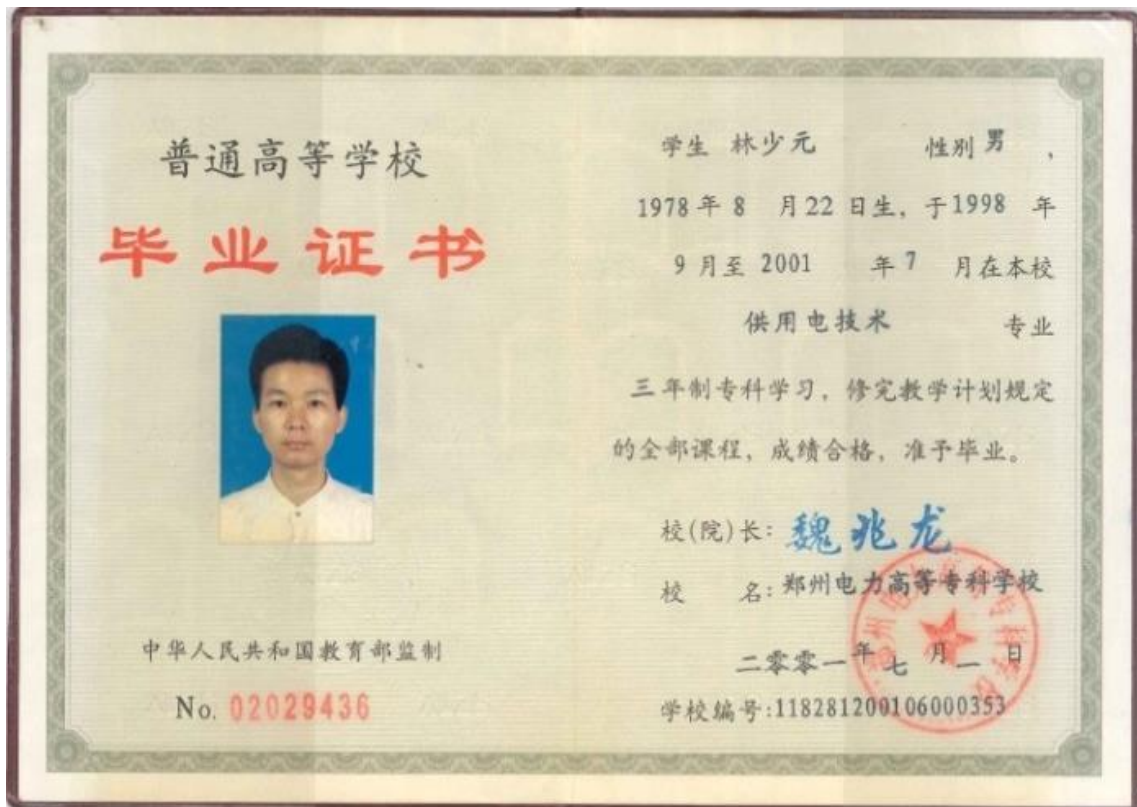 普通高等学校
毕业证书
中华人民共和国教育部监制
No. 02029436
学生 林少元 性别 男 ，
1978 年 8 月 22 日生，于 1998 年
9 月至 2001 年 7 月在本校
供用电技术 专业
三年制专科学习，修完教学计划规定
的全部课程，成绩合格，准予毕业。
校(院)长：魏兆龙
校 名：郑州电力高等专科学校
二零零一年七月一日
学校编号:118281200106000353
郑州电力高等专科学校